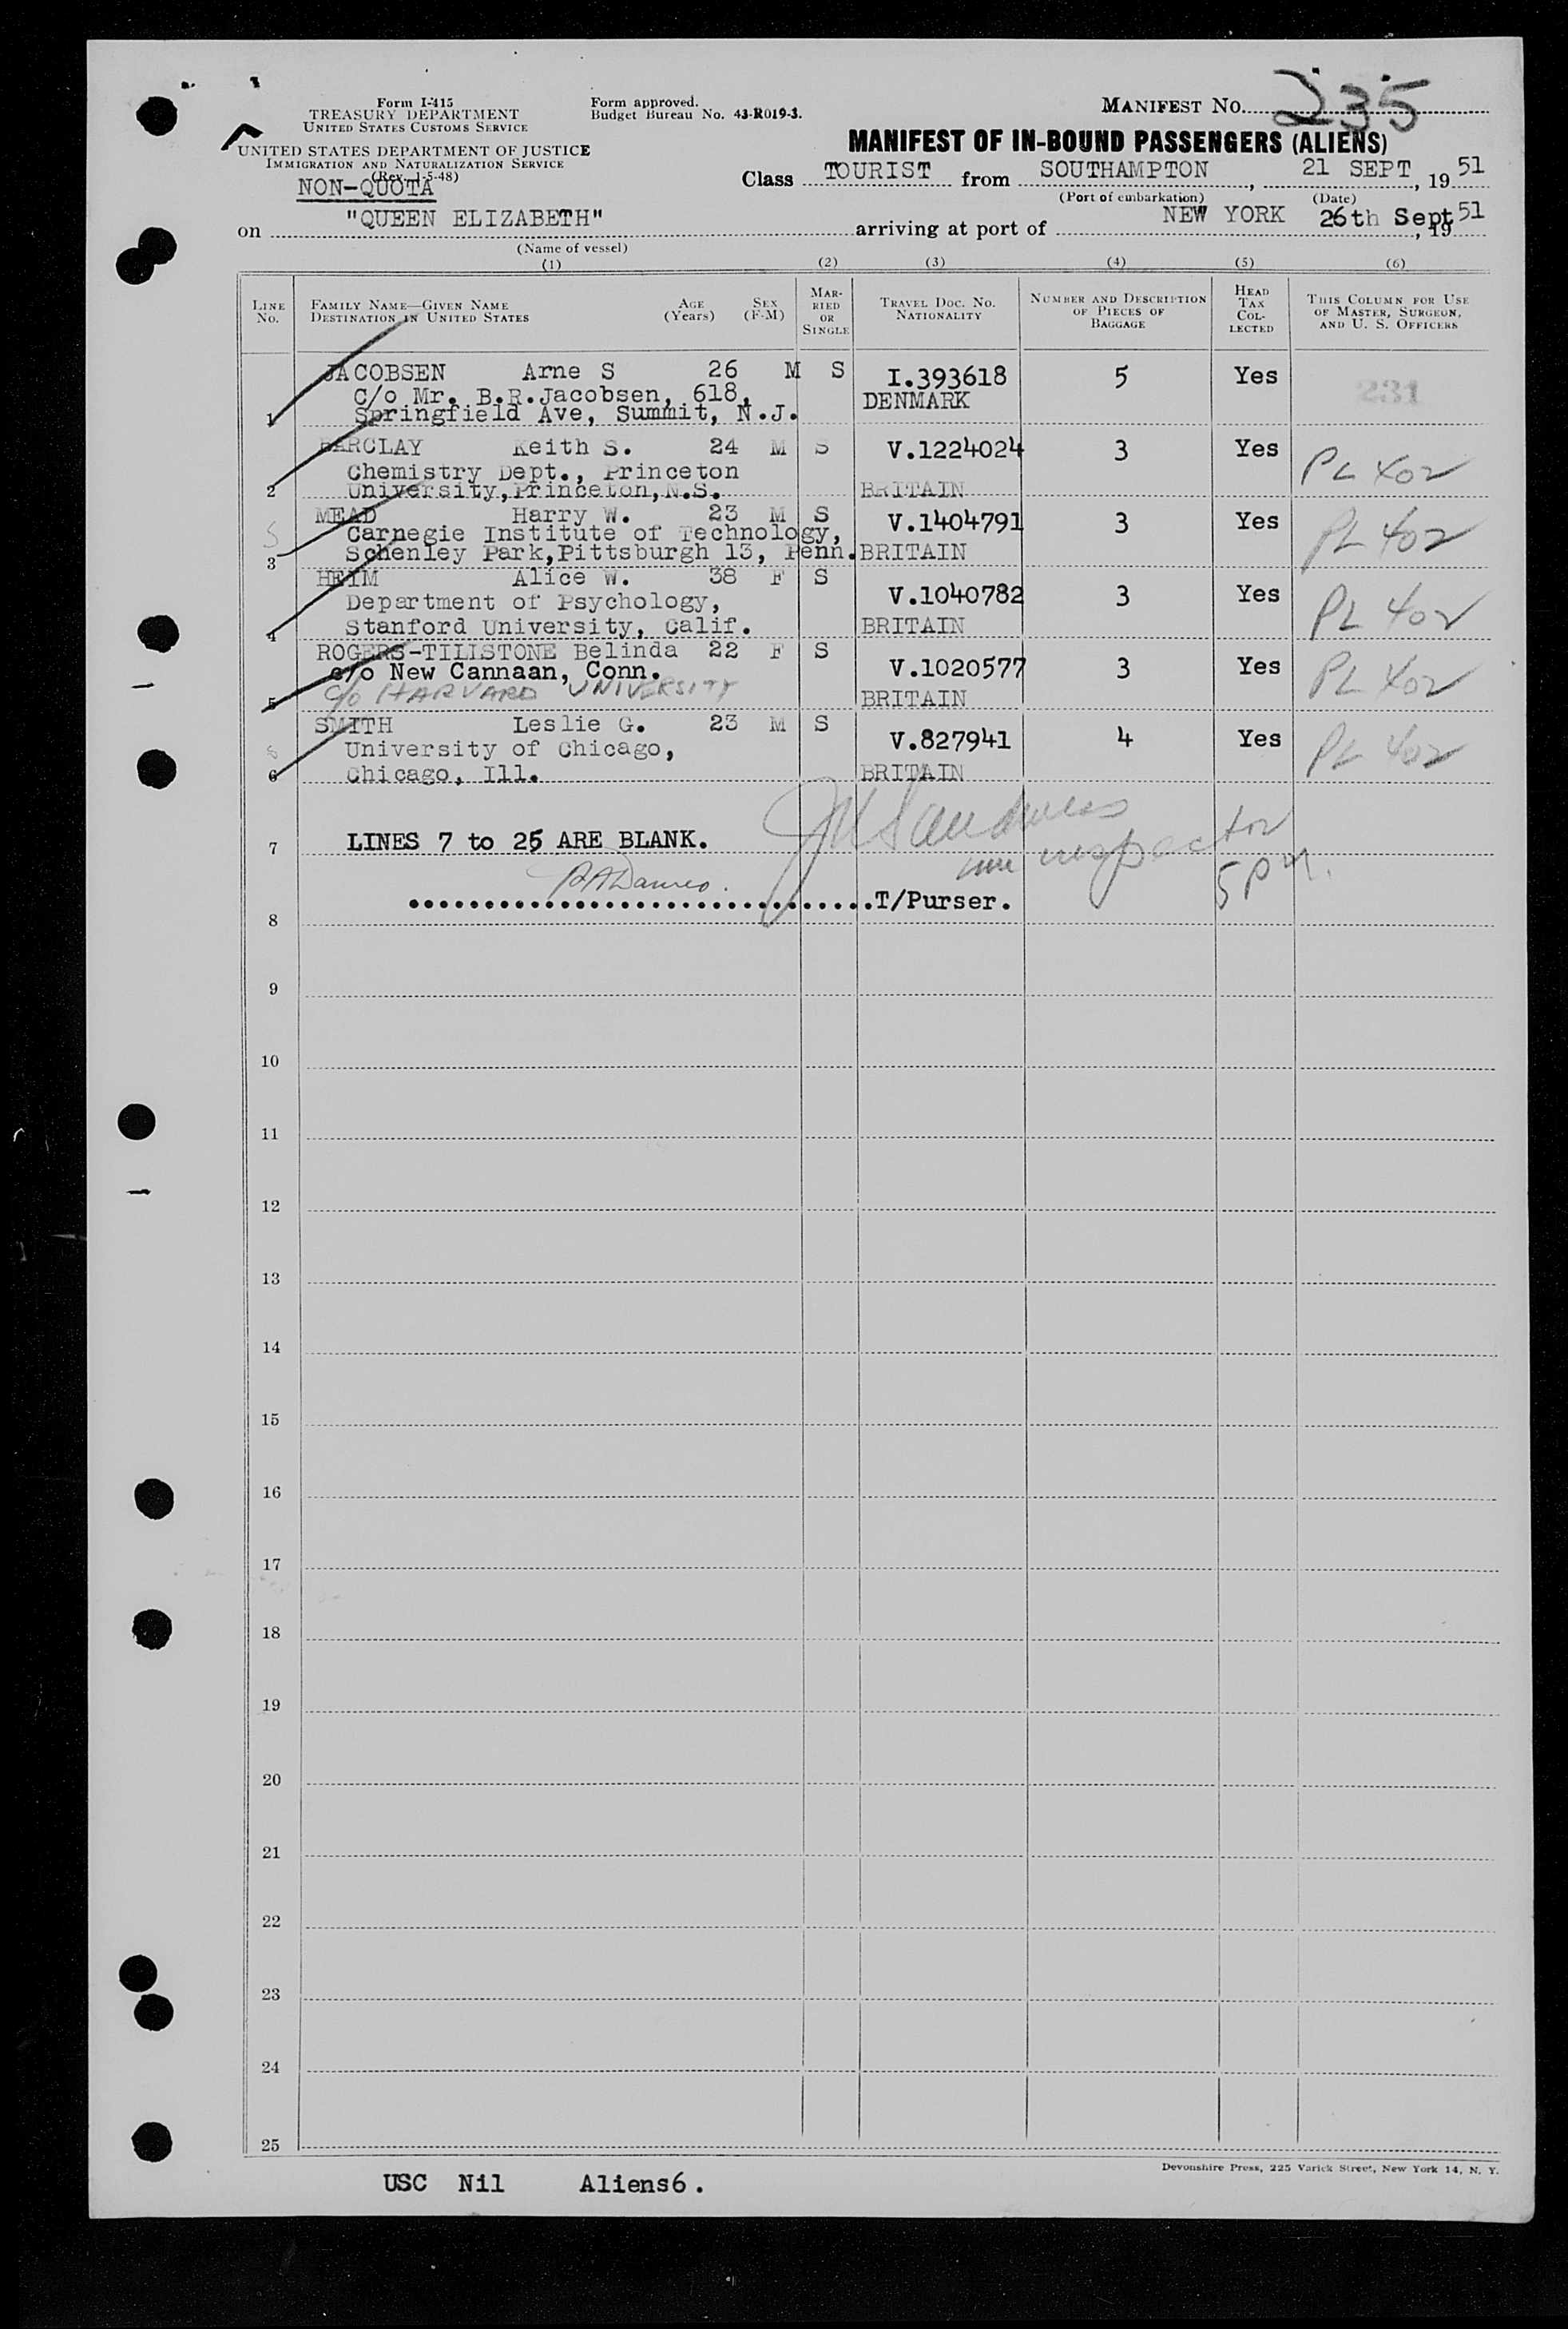 Form I-415
TREASURY DEPARTMENT
UNITED STATES CUSTOMS SERVICE
UNITED STATES DEPARTMENT OF JUSTICE
IMMIGRATION AND NATURALIZATION SERVICE
(Rev. 1-5-48)
NON-QUOTA
Form approved.
Budget Bureau No. 43-R019-3.
MANIFEST No. 235
MANIFEST OF IN-BOUND PASSENGERS (ALIENS)
Class TOURIST from SOUTHAMPTON, 21 SEPT, 1951
(Port of embarkation) (Date)
on "QUEEN ELIZABETH" arriving at port of NEW YORK 26th Sept, 1951
(Name of vessel)
(1) (2) (3) (4) (5) (6)
LINE No. FAMILY NAME—GIVEN NAME DESTINATION IN UNITED STATES AGE (Years) SEX (F-M) MARRIED OR SINGLE TRAVEL DOC. NO. NATIONALITY NUMBER AND DESCRIPTION OF PIECES OF BAGGAGE HEAD TAX COLLECTED THIS COLUMN FOR USE OF MASTER, SURGEON, AND U. S. OFFICERS
JACOBSEN Arne S 26 M S I.393618 5 Yes 231
C/o Mr. B.R.Jacobsen, 618, DENMARK
1 Springfield Ave, Summit, N.J.
BARCLAY Keith S. 24 M S V.1224024 3 Yes PL 402
Chemistry Dept., Princeton
2 University,Princeton,N.S. BRITAIN
MEAD Harry W. 23 M S V.1404791 3 Yes PL 402
S Carnegie Institute of Technology,
3 Schenley Park,Pittsburgh 13, Penn. BRITAIN
HEIM Alice W. 38 F S V.1040782 3 Yes PL 402
Department of Psychology,
4 Stanford University, Calif. BRITAIN
ROGERS-TILLSTONE Belinda 22 F S V.1020577 3 Yes PL 402
c/o New Cannaan, Conn.
5 c/o HARVARD UNIVERSITY BRITAIN
SMITH Leslie G. 23 M S V.827941 4 Yes PL 402
University of Chicago,
6 Chicago, Ill. BRITAIN
7 LINES 7 to 25 ARE BLANK.
inspector
5 PM.
T/Purser.
8
9
10
11
12
13
14
15
16
17
18
19
20
21
22
23
24
25
Devonshire Press, 225 Varick Street, New York 14, N. Y.
USC Nil Aliens6.